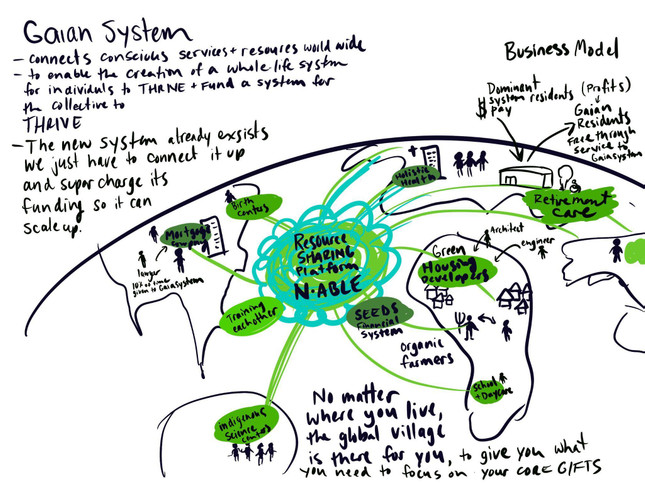 Gaian System
- connects conscious services + resources world wide
- to enable the creation of a whole life system
for individuals to THRIVE + Fund a system for
the collective to
THRIVE
- The new system already exsists
we just have to connect it up
and super charge its
funding so it can
scale up.
Business Model
Dominant
system residents (Profits)
$ pay
Gaian
Residents
Free through
service to
Gaia system
Holistic
Health
Retirement
CARE
Birth
centers
Mortgage
Company
given to Gaia System
Resource
SHARING
Platform
N·ABLE
Training
eachother
SEEDS
Financial
System
Green
Housing
Developers
Architect
engineer
organic
farmers
School
+ Daycare
indigenous
Science
Centers
No matter
where you live,
the global village
is there for you, to give you what
you need to focus on your CORE GIFTS